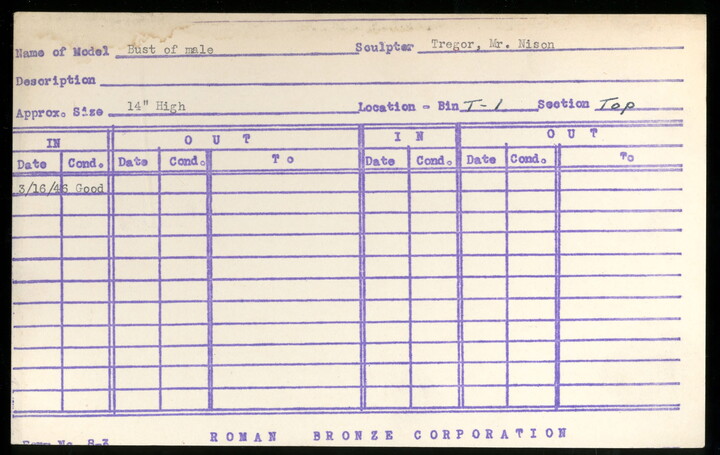 Name of Model Bust of male Sculpter Tregor, Mr. Nison
Description
Approx. Size 14" High Location - Bin T-1 Section Top
IN OUT IN OUT
Date Cond. Date Cond. To Date Cond. Date Cond. To
3/16/46 Good
Form No. 8-3 ROMAN BRONZE CORPORATION